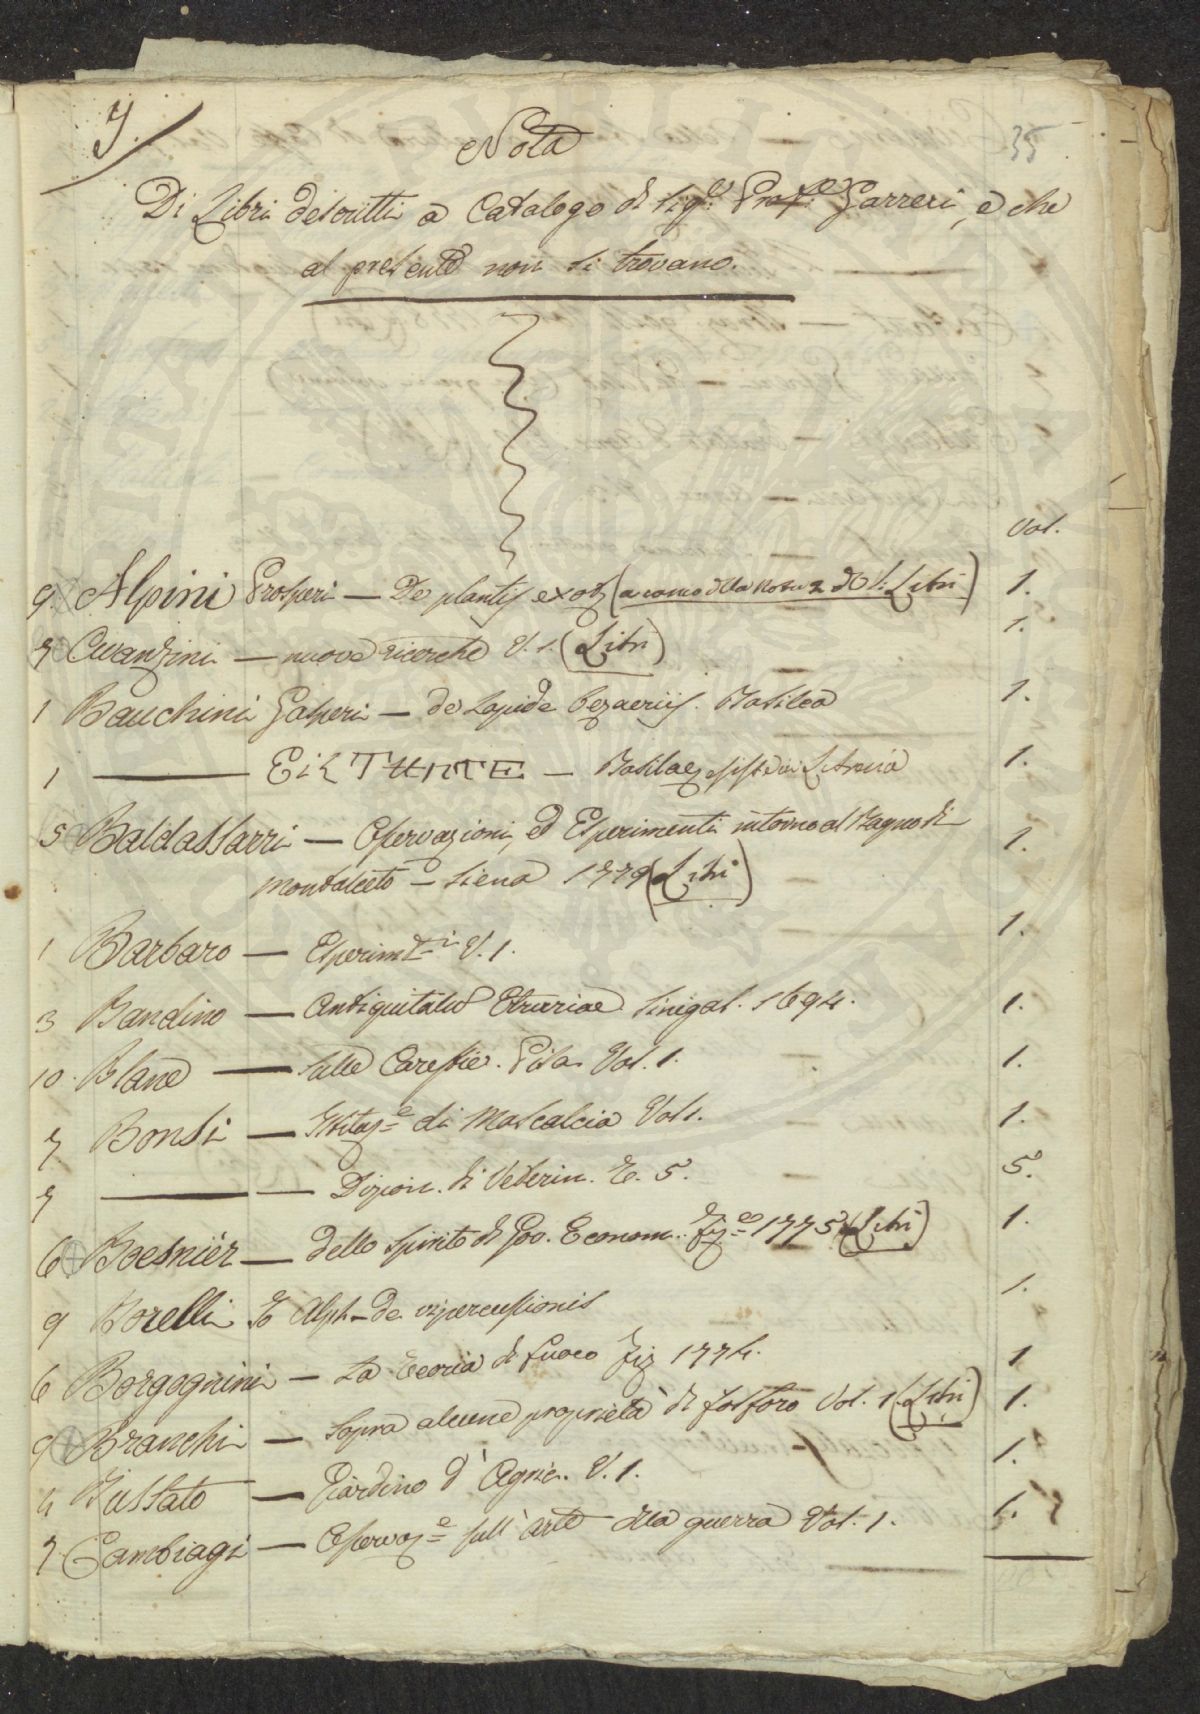 7.
35
Nota
Di Libri descritti a Catalogo di Sigr. Profre. Garreri, e che
al presente non si trovano.
Vol.
9. Alpini Prosperi — De plantis exot (a como della Nota 2 de Libri) 1.
7 Avanzini — nuove ricerche V. 1. (Libri) 1.
1 Bauchini Gasperi — de Lapide bezaeriis. Basilea 1.
1 ——— Basilae esiste in Libreria 1.
5 Baldassarri — Osservazioni, ed Esperimenti intorno al Bagno di
Montalceto — Siena 1779 (Libri) 1.
1 Barbaro — Esperimti. V. 1. 1.
3 Bandino — Antiquitatu Etruriae Sinigal. 1694. 1.
10. Blane — Sulle Carestie. Pisa Vol. 1. 1.
7 Bonsi — Istituze. di Mascalcia Vol 1. 1.
7 ——— — Dizion. di Veterin. T. 5. 5.
6 Boesnier — dello Spirito di Gov. Econom. 1775 (Libri) 1.
9 Borelli Jo Alph — de vi percussionis 1.
6 Borgognini — La Teoria di fuoco 1774. 1
9 Branchi — Sopra alcune proprietà di fosforo Vol. 1 (Libri) 1.
4 Bussato — Giardino d'Agric. V. 1. 1.
7 Cambiagi — Osservaze. sull'arte della guerra Vol. 1. 1.